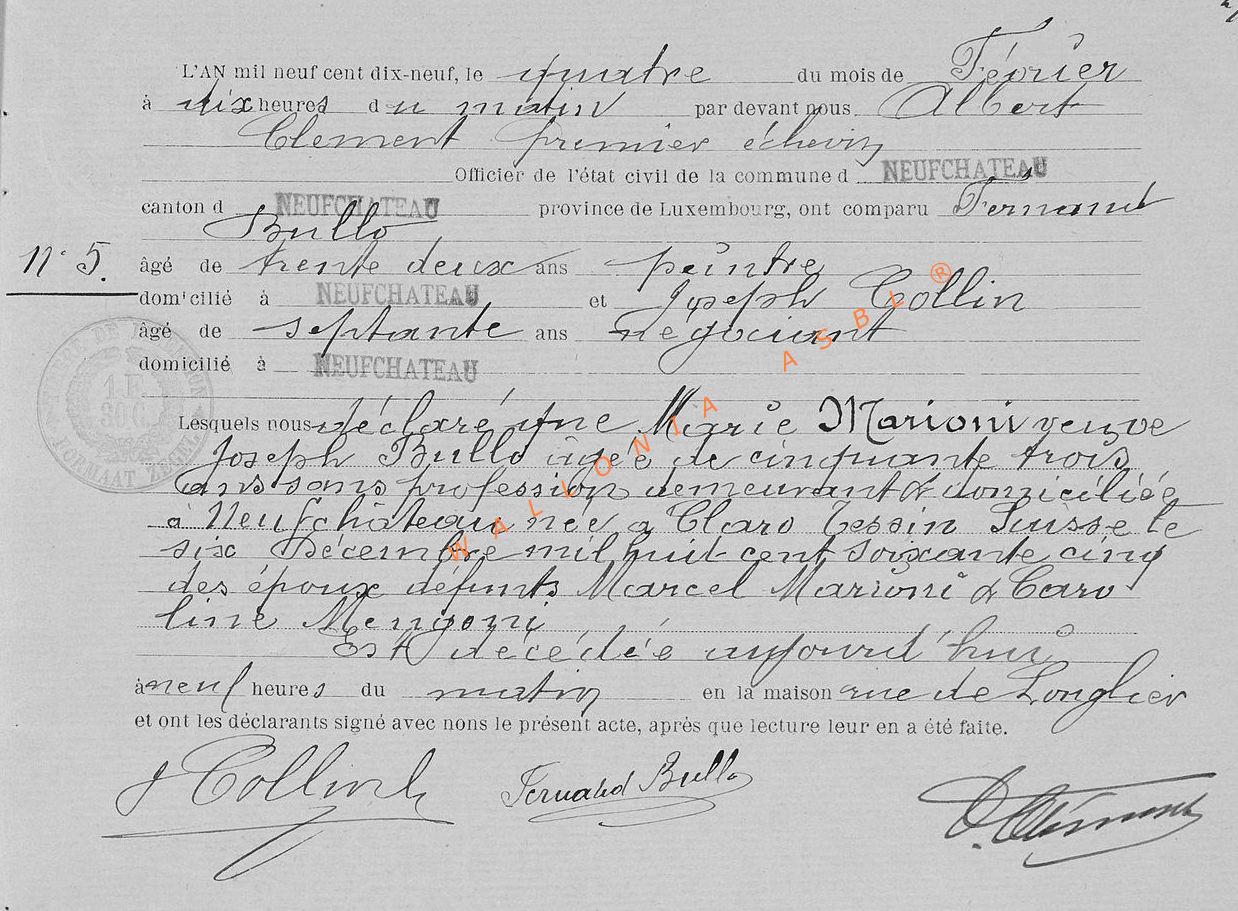 L'AN mil neuf cent dix-neuf, le quatre du mois de Février
à dix heures du matin par devant nous Albert
Clement premier échevin
Officier de l'état civil de la commune d NEUFCHATEAU
canton d NEUFCHATEAU province de Luxembourg, ont comparu Fernand
Bullo
n° 5.
âgé de trente deux ans peintre
domicilié à NEUFCHATEAU et Joseph Collin
âgé de septante ans négociant
domicilié à NEUFCHATEAU
Lesquels nous déclaré que Marie Marioni veuve
Joseph Bullo âgée de cinquante trois
ans sans profession demeurant & domiciliée
à Neufchâteau née a Claro Tessin Suisse le
six Décembre mil huit cent soixante cinq
des époux défunts Marcel Marioni & Caro
line Mengoni
Est décédée aujourd'hui
à neuf heures du matin en la maison rue de Longlier
et ont les déclarants signé avec nons le présent acte, après que lecture leur en a été faite.
J Collin Fernand Bullo
WALLONIA ASBL ®
1 F.
30 C.
FORMAAT ZEGEL